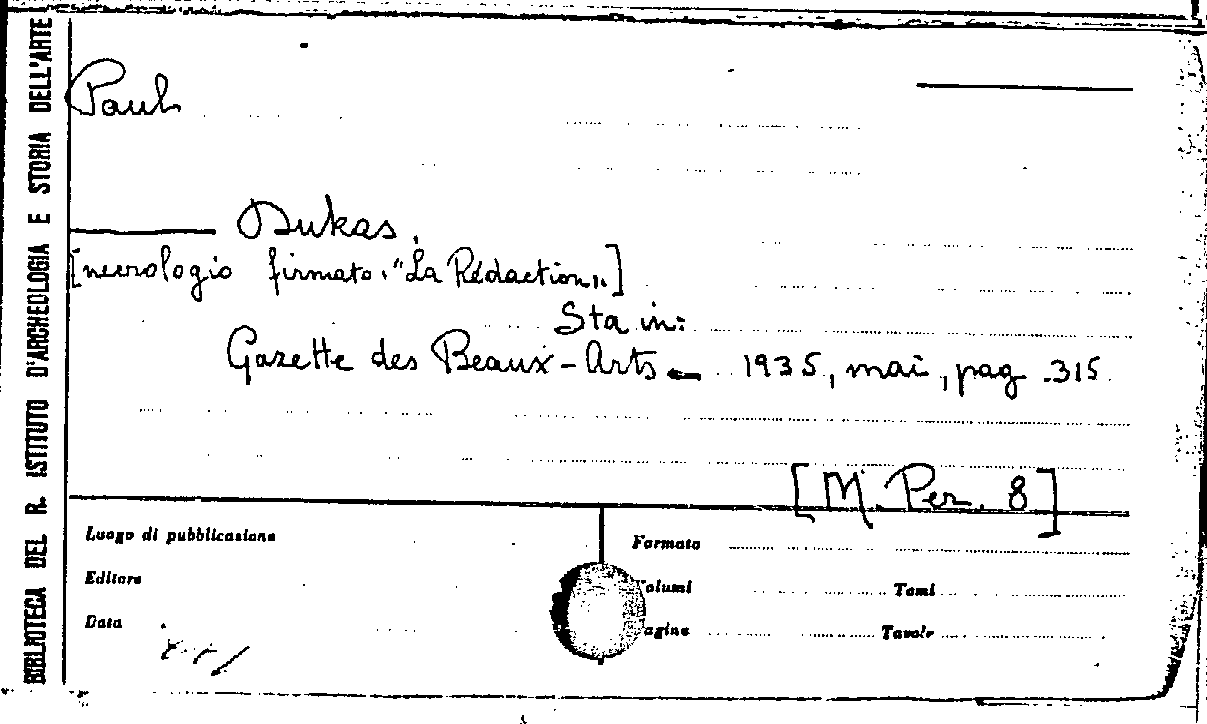 BIBLIOTECA DEL R. ISTITUTO D'ARCHEOLOGIA E STORIA DELL'ARTE
Paul
Dukas.
[necrologio firmato: "La Rédaction".]
Sta in:
Gazette des Beaux-Arts - 1935, mai, pag. 315.
[M. Per. 8]
Luogo di pubblicazione
Editore
Data
Formato
Volumi Tomi
Pagine Tavole